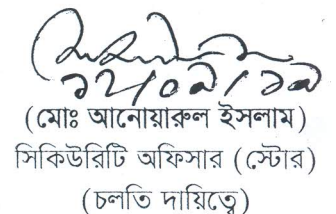 (মোঃ আনোয়ারুল ইসলাম)
সিকিউরিটি অফিসার (স্টোর)
(চলতি দায়িত্বে)